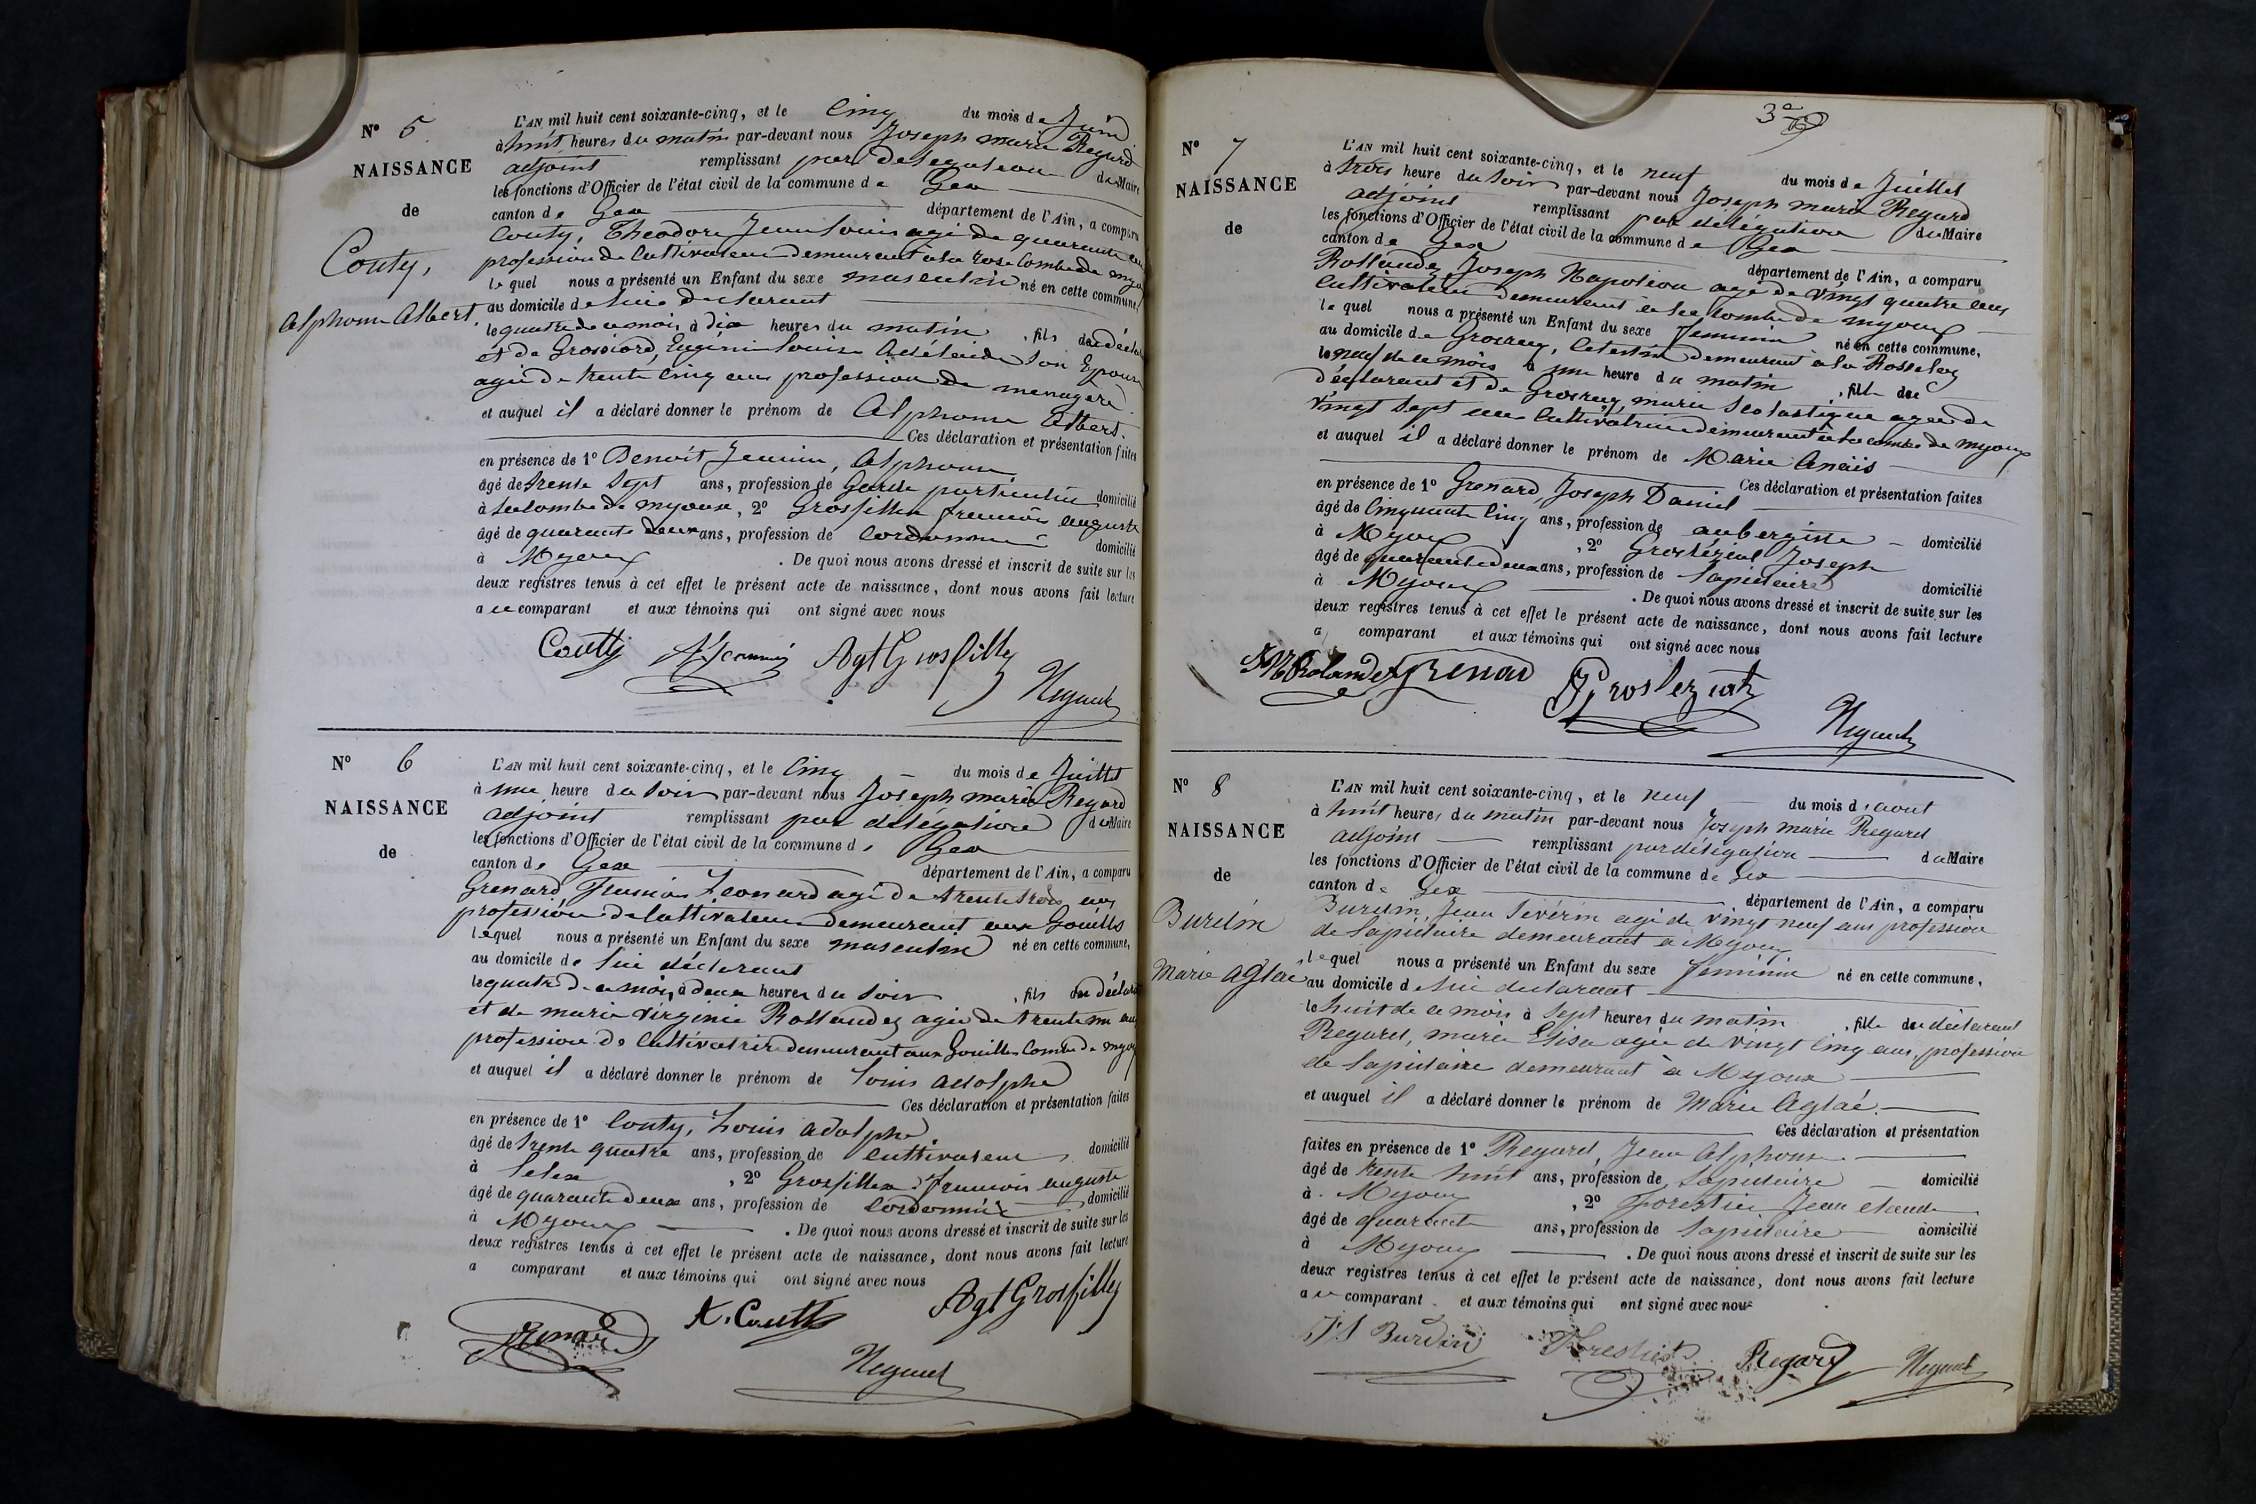 N° 5
NAISSANCE
de
Couty,
Alphonse Albert
L'AN mil huit cent soixante-cinq, et le Cinq du mois de Juin
à huit heures du matin par-devant nous Joseph marie Regard
adjoint remplissant par délégation du Maire
les fonctions d'Officier de l'état civil de la commune de Gex
canton de Gex département de l'Ain, a comparu
Couty, Théodore Jean Louis agé de quarante ans
profession de Cultivateur demeurant à la combe de myoux
lequel nous a présenté un Enfant du sexe masculin né en cette commune,
au domicile de lui déclarant
le quatre de ce mois à dix heures du matin, fils du déclarant
et de Grossiord, Eugénie Louise Adélaide son Epouse
agée de trente cinq ans profession de menagère
et auquel il a déclaré donner le prénom de Alphonse Albert.
Ces déclaration et présentation faites
en présence de 1° Benoit Jeannin, Alphonse
âgé de trente sept ans, profession de Garde particulier domicilié
à la combe de myoux, 2° Grosfillex françois auguste
âgé de quarante deux ans, profession de Cordonnier domicilié
à Myoux. De quoi nous avons dressé et inscrit de suite sur les
deux registres tenus à cet effet le présent acte de naissance, dont nous avons fait lecture
au comparant et aux témoins qui ont signé avec nous
Coutty A. Jeannin Agt Grosfilley
Regard
N° 6
NAISSANCE
de
L'AN mil huit cent soixante-cinq, et le Cinq du mois de Juillet
à une heure du soir par-devant nous Joseph marie Regard
adjoint remplissant par délégation du Maire
les fonctions d'Officier de l'état civil de la commune de Gex
canton de Gex département de l'Ain, a comparu
Grenard François Léonard agé de trente trois ans
profession de Cultivateur demeurant aux Gouilles
lequel nous a présenté un Enfant du sexe masculin né en cette commune,
au domicile de lui déclarant
le quatre de ce mois, à deux heures du soir, fils du déclarant
et de marie virginie Rollandez agée de trente un ans
profession de Cultivatrice demeurant aux Gouilles Combe de myoux
et auquel il a déclaré donner le prénom de Louis adolphe
Ces déclaration et présentation faites
en présence de 1° Couty, Louis adolphe
âgé de trente quatre ans, profession de Cultivateur domicilié
à Lelex, 2° Grosfillex françois auguste
âgé de quarante deux ans, profession de Cordonnier domicilié
à Myoux. De quoi nous avons dressé et inscrit de suite sur les
deux registres tenus à cet effet le présent acte de naissance, dont nous avons fait lecture
a comparant et aux témoins qui ont signé avec nous
Grenard A. Coutty Agt Grosfilley
Regard
N° 7
NAISSANCE
de
L'AN mil huit cent soixante-cinq, et le neuf du mois de Juillet
à trois heure du soir par-devant nous Joseph marie Regard
adjoint remplissant par délégation du Maire
les fonctions d'Officier de l'état civil de la commune de Gex
canton de Gex département de l'Ain, a comparu
Rollandez, Joseph Napoléon agé de vingt quatre ans
Cultivateur demeurant à la Combe de myoux
lequel nous a présenté un Enfant du sexe féminin né en cette commune,
au domicile de Grosrey, Célestin demeurant à la
le neuf de ce mois à une heure du matin, fille du
déclarant et de Grosrey, marie Scolastique agée de
vingt sept ans Cultivatrice demeurant à la combe de myoux
et auquel il a déclaré donner le prénom de Marie Anaïs
Ces déclaration et présentation faites
en présence de 1° Grenard, Joseph Daniel
âgé de Cinquante Cinq ans, profession de aubergiste domicilié
à Myoux, 2° Joseph
âgé de quarante deux ans, profession de lapidaire domicilié
à Myoux. De quoi nous avons dressé et inscrit de suite sur les
deux registres tenus à cet effet le présent acte de naissance, dont nous avons fait lecture
a comparant et aux témoins qui ont signé avec nous
Rolandez Grenard
Regard
N° 8
NAISSANCE
de
Burdin
Marie Aglaé
L'AN mil huit cent soixante-cinq, et le neuf du mois d'aout
à huit heures du matin par-devant nous Joseph marie Regard
adjoint remplissant par délégation du Maire
les fonctions d'Officier de l'état civil de la commune de Gex
canton de Gex département de l'Ain, a comparu
Burdin, Jean Sévérin agé de vingt neuf ans profession
de lapidaire demeurant à Myoux
lequel nous a présenté un Enfant du sexe féminin né en cette commune,
au domicile de lui déclarant
le huit de ce mois à sept heures du matin, fille du déclarant
Regard, marie Elisa agée de vingt cinq ans, profession
de lapidaire demeurant à Myoux
et auquel il a déclaré donner le prénom de Marie Aglaé.
Ces déclaration et présentation
faites en présence de 1° Regard, Jean Alphonse
âgé de trente huit ans, profession de lapidaire domicilié
à Myoux, 2° Forestier Jean claude
âgé de quarante ans, profession de lapidaire domicilié
à Myoux. De quoi nous avons dressé et inscrit de suite sur les
deux registres tenus à cet effet le présent acte de naissance, dont nous avons fait lecture
au comparant et aux témoins qui ont signé avec nous
J S Burdin Forestier Regard Regard